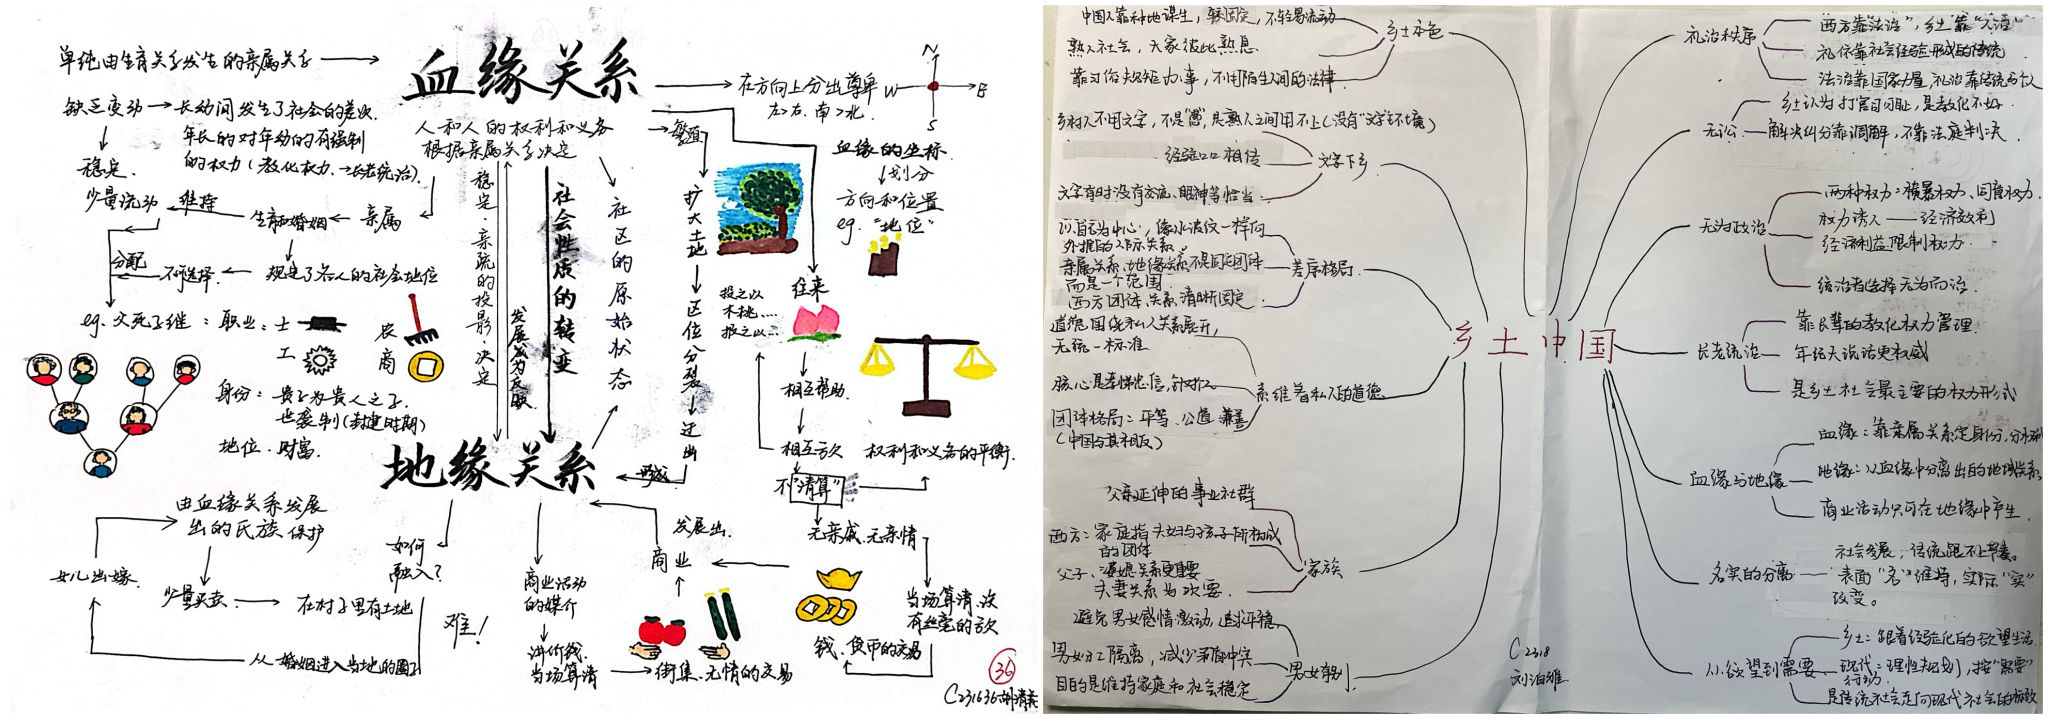 单纯由生育关系发生的亲属关系
血缘关系
在方向上分出尊卑
左>右.南>北.
N
W
E
S
缺乏变动
长幼间发生了社会的差次.
年长的对年幼的有强制
的权力(教化权力.→长老统治).
稳定.
少量流动
维持
生育和婚姻
亲属
分配
不可选择.
规定了各人的社会地位
eg.父死子继:
职业:
士
农
工
商
身份:贵子为贵人之子.
世袭制(封建时期)
地位.财富.
人和人的权利和义务
根据亲属关系决定
稳定.亲疏的投影.决定
发展成为反映
社会性质的转变
社区的原始状态
繁殖
扩大土地
区位分裂
迁出
形成
血缘的坐标.
划分
方向和位置
eg."地位"
往来
投之以
木桃....
报之以....
相互帮助.
相互亏欠
不"清算"
权利和义务的平衡.
无亲戚.无亲情
地缘关系
由血缘关系发展
出的民族
保护
女儿出嫁.
少量买卖
在村子里有土地
从婚姻进入当地的圈子
如何
融入?
难!
商业活动
的媒介
讲价钱.
当场算清
街集.无情的交易
发展出.
商业
钱.货币的交易
当场算清.欠
有丝毫的欠
36
C231636
乡土中国
乡土本色
中国人靠种地谋生,较固定,不轻易流动
熟人社会,大家彼此熟悉.
靠习俗规矩办事,不用陌生人间的法律
文字下乡
乡村人不用文字,不是"愚",是熟人之间用不上(没有"文字"环境)
经验口口相传
文字有时没有交流、眼神等恰当.
差序格局
以自己为中心,像水波纹一样向
外推的人际关系.
亲属关系、地缘关系,不是固定团体
而是一个范围.
西方团体关系清晰固定.
系维着私人的道德.
道德围绕私人关系展开,
无统一标准
核心是孝悌忠信,针对人
团体格局:平等、公道、兼善
(中国与其相反)
家族
父亲延伸的事业社群
西方:家庭指夫妇与孩子所构成
的团体
父子、婆媳关系更重要
夫妻关系为次要.
男女有别
避免男女感情激动,追求平稳.
男女分工隔离,减少矛盾冲突
目的是维持家庭和社会稳定
礼治秩序
西方靠"法治",乡土靠"人治"
礼依靠社会经验形成的传统
法治靠国家力量,礼治靠传统与个人
无讼
乡土认为打官司可耻,是教化不好.
解决纠纷靠调解,不靠法庭判决.
无为政治
两种权力:横暴权力、同意权力.
权力诱人——经济效利
经济利益限制权力.
统治者选择无为而治.
长老统治
靠长辈的教化权力管理.
年纪大说话更权威
是乡土社会最主要的权力形式
血缘与地缘
血缘:靠亲属关系定身份,
地缘:从血缘中分离出的地域关系.
商业活动只可在地缘中产生.
名实的分离
社会发展,传统跟不上节奏.
表面"名"维持,实际"实"
改变。
从欲望到需要
乡土:跟着经验化的欲望生活.
现代:理性规划,按"需要"
行动.
是传统社会走向现代社会的标致
C2318